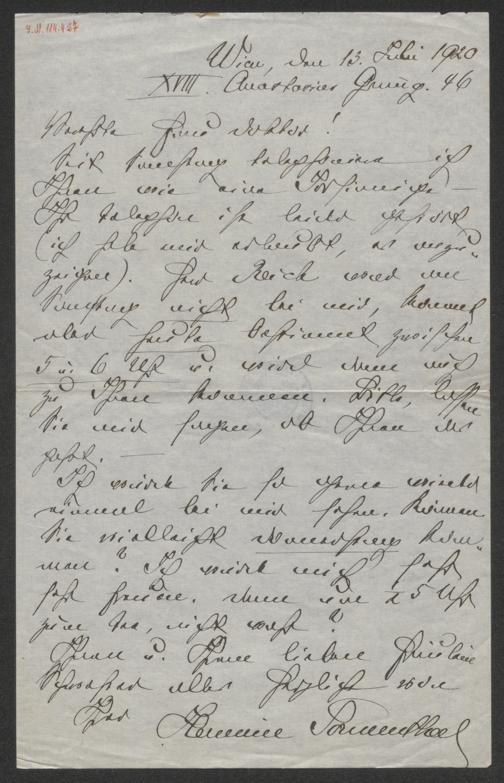 Wien, den 13. Juli 1920
XVIII. Anastasius Grüng. 46
Verehrte Frau Doktor!
Seit Samstag telephoniere ich
Ihnen wie eine Irrsinnige –
Ihr Telephon ist leider gestört
(ich habe mir erlaubt, es anzu-
zeigen). Frl Reich war am
Samstag nicht bei mir, kommt
aber heute bestimmt zwischen
5 u. 6 Uhr u. wird dann auch
zu Ihnen kommen. Bitte, lassen
Sie mir sagen, ob Ihnen das
paßt. —
Ich würde Sie so gerne wieder
einmal bei mir sehen. Können
Sie vielleicht Donnerstag kom-
men? Ich würde mich sehr
sehr freuen. Dann um ½ 5 Uhr
zum Tee, nicht wahr?
Ihnen u. Ihrem lieben Fräulein
Schwester alles Herzliche von
Ihrer Hermine Sonnenthal